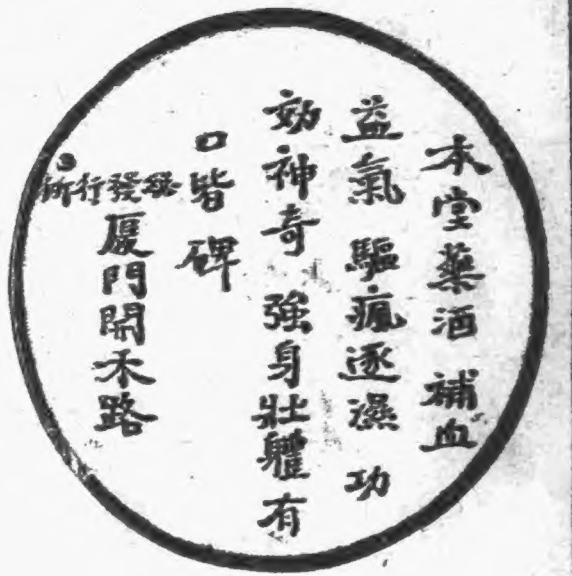 本堂藥酒 補血
益氣 驅瘋逐濕 功
効神奇 強身壯軆 有
口皆碑
總發行所
廈門開禾路